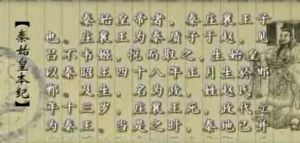 【秦始皇本纪】
秦始皇帝者，秦庄襄王子
也。庄襄王为秦质子于赵，见
吕不韦姬，悦而取之，生始皇。
以秦昭王四十八年正月生於邯
郸。及生，名为政，姓赵氏。
年十三岁，庄襄王死，政代立
为秦王。当是之时，秦地已并